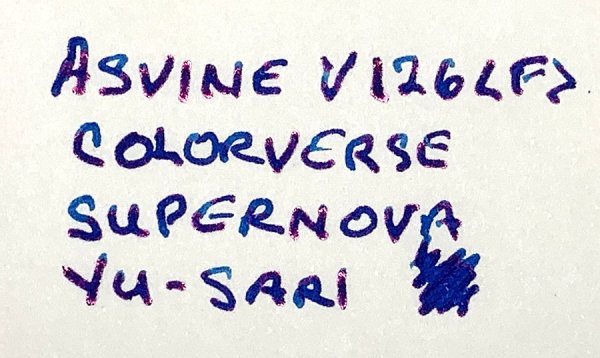 ASVINE V126<F>
COLORVERSE
SUPERNOVA
YU-SARI